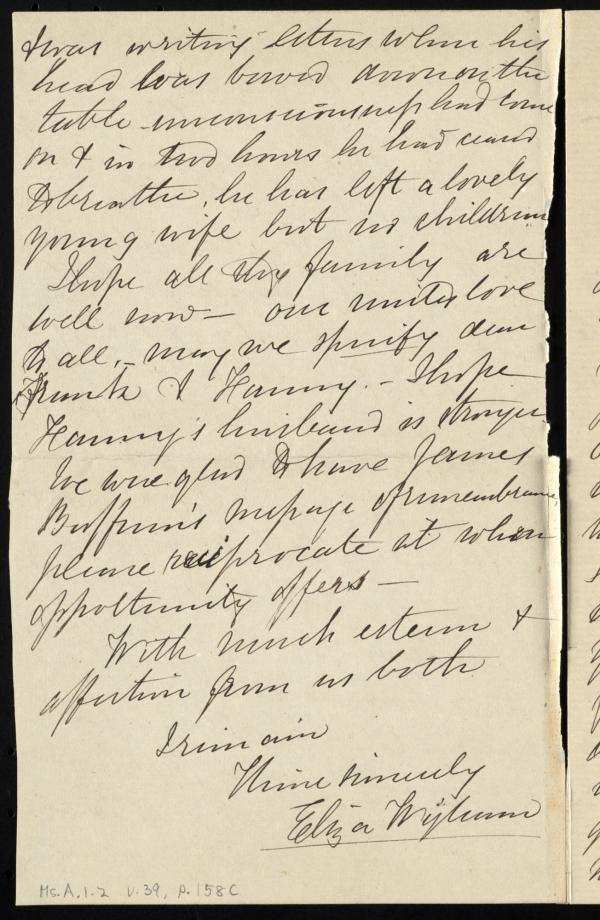 & was writing letters when his
head was bowed down on the
table - unconsciousness had come
on & in two hours he had ceased
to breathe, he has left a lovely
young wife but no children
I hope all thy family are
well now — our united love
to all, - may we specify dear
Frank & Fanny. - I hope
Fanny's husband is stronger
We were glad to have James
Buffum's message of remembrance,
please reciprocate it when
opportunity offers —
With much esteem &
affection from us both
I remain
Thine sincerely
Eliza Wigham
Ms. A. 1. 2 v. 39, p. 158 C